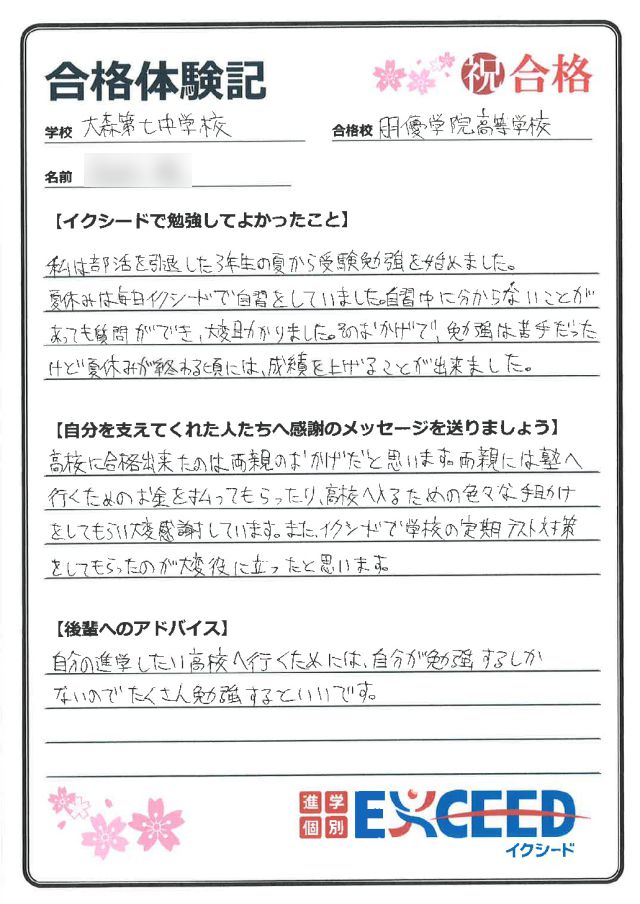 合格体験記
祝 合格
学校 大森第七中学校
合格校 朋優学院高等学校
名前
【イクシードで勉強してよかったこと】
私は部活を引退した3年生の夏から受験勉強を始めました。
夏休みは毎日イクシードで自習をしていました。自習中に分からないことが
あっても質問ができ、大変助かりました。そのおかげで、勉強は苦手だった
けど夏休みが終わる頃には、成績を上げることが出来ました。
【自分を支えてくれた人たちへ感謝のメッセージを送りましょう】
高校に合格出来たのは両親のおかげだと思います。両親には塾へ
行くためのお金を払ってもらったり、高校へ入るための色々な手助け
をしてもらい大変感謝しています。また、イクシードで学校の定期テスト対策
をしてもらったのが大変役に立ったと思います。
【後輩へのアドバイス】
自分の進学したい高校へ行くためには、自分が勉強するしか
ないのでたくさん勉強するといいです。
進学
個別
EXCEED
イクシード